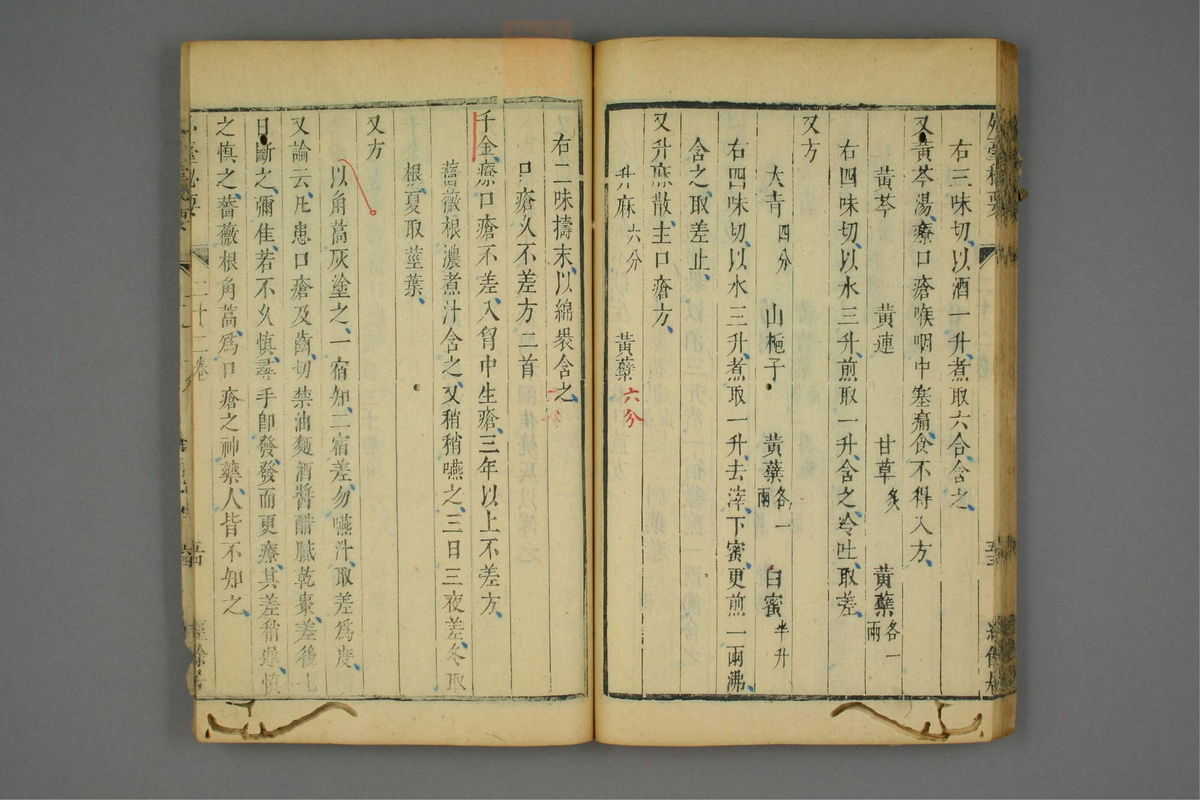 右三味切以酒一升煮取六合含之
又黃芩湯療口瘡喉咽中塞痛食不得入方
黃芩 黃連 甘草炙 黃蘗各一兩
右四味切以水三升煎取一升含之冷吐取差
又方
大青四分 山梔子 黃蘗各一兩 白蜜半升
右四味切以水三升煮取一升去滓下蜜更煎一兩沸
含之取差止
又升麻散主口瘡方
升麻六分 黃蘗六分
右二味擣末以綿褁含之
口瘡久不差方二首
千金療口瘡不差入胷中生瘡三年以上不差方
薔薇根濃煮汁含之又稍稍嚥之三日三夜差冬取
根夏取莖葉
又方
以角蒿灰塗之一宿知二宿差勿嚥汁取差爲度
又論云凡患口瘡及齒切禁油麵酒醬醋膩乾棗差後七
日斷之彌佳若不久慎尋手卽發發而更療其差稍遲愼
之慎之薔薇根角蒿爲口瘡之神藥人皆不知之
二十二卷